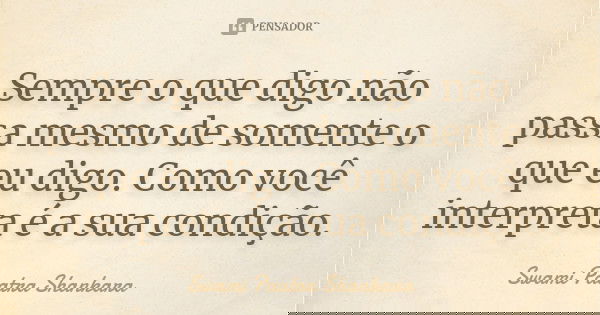 PENSADOR
Sempre o que digo não
passa mesmo de somente o
que eu digo. Como você
interpreta é a sua condição.
Swami Paatra Shankara